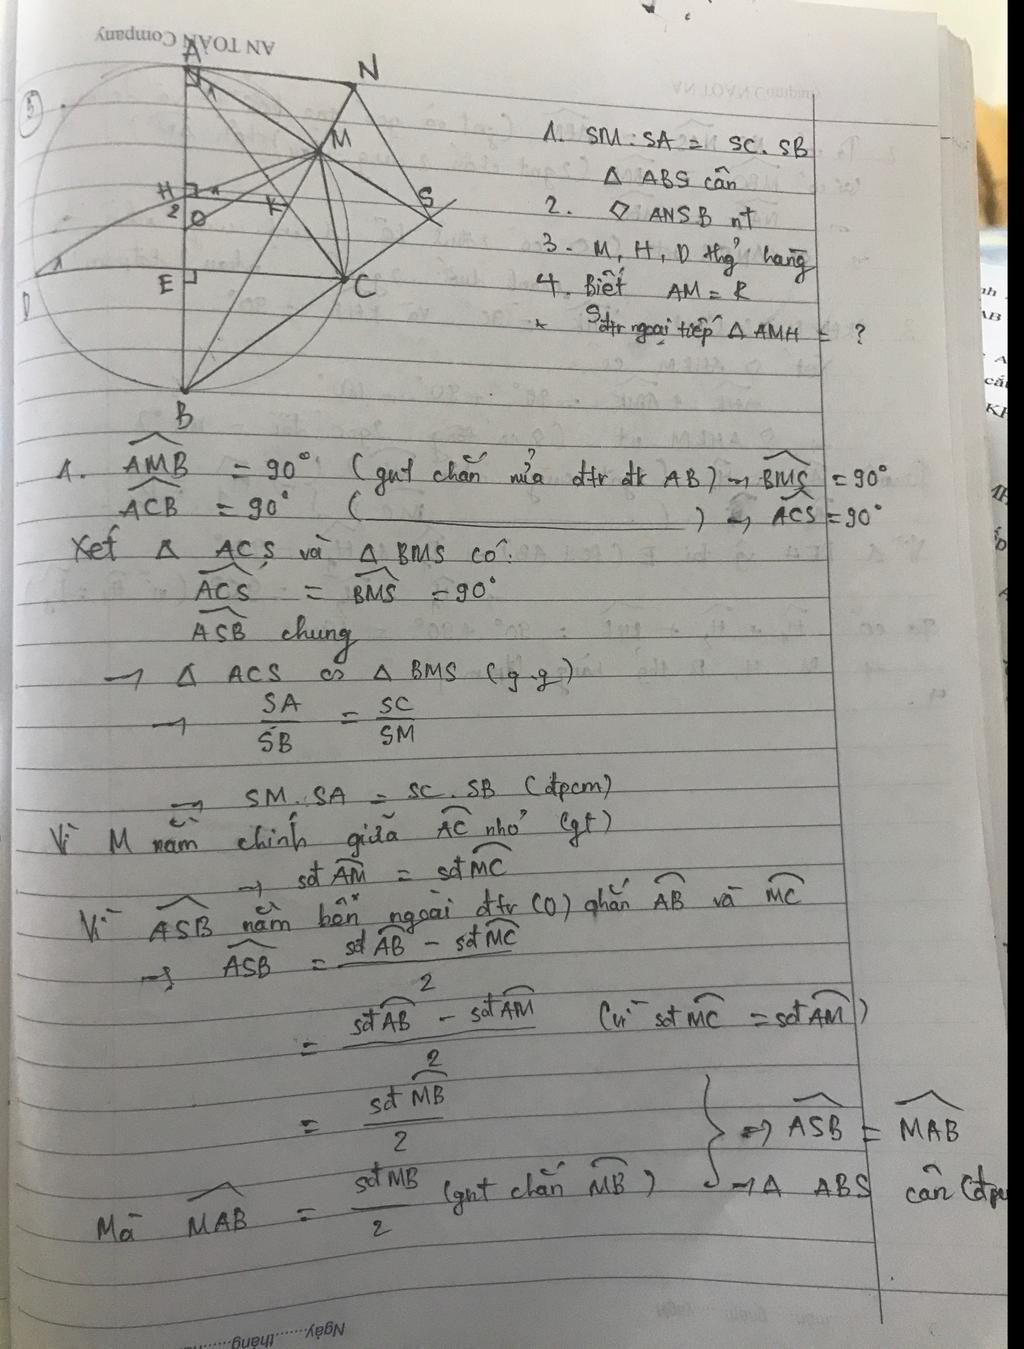 AN TOÀN Company
5
A
N
M
H
1
K
S
2
O
1
D
E
C
B
1. SM . SA = SC . SB
Δ ABS cân
2. ◇ ANSB nt
3. M, H, D thẳng hàng
4. Biết AM = R
* Sđtr ngoại tiếp Δ AMH = ?
1. AMB = 90° (gnt chắn nửa đtr đk AB) → BMS = 90°
ACB = 90° ( ) → ACS = 90°
Xét Δ ACS và Δ BMS có:
ACS = BMS = 90°
ASB chung
→ Δ ACS ∽ Δ BMS (g.g)
→ SA/SB = SC/SM
→ SM . SA = SC . SB (đpcm)
Vì M nằm chính giữa AC nhỏ (gt)
→ sđ AM = sđ MC
Vì ASB nằm bên ngoài đtr (O) chắn AB và MC
→ ASB = (sđ AB - sđ MC)/2
= (sđ AB - sđ AM)/2 (vì sđ MC = sđ AM)
= sđ MB/2
Mà MAB = sđ MB/2 (gnt chắn MB)
⇒ ASB = MAB
→ Δ ABS cân (đp
Ngày......tháng